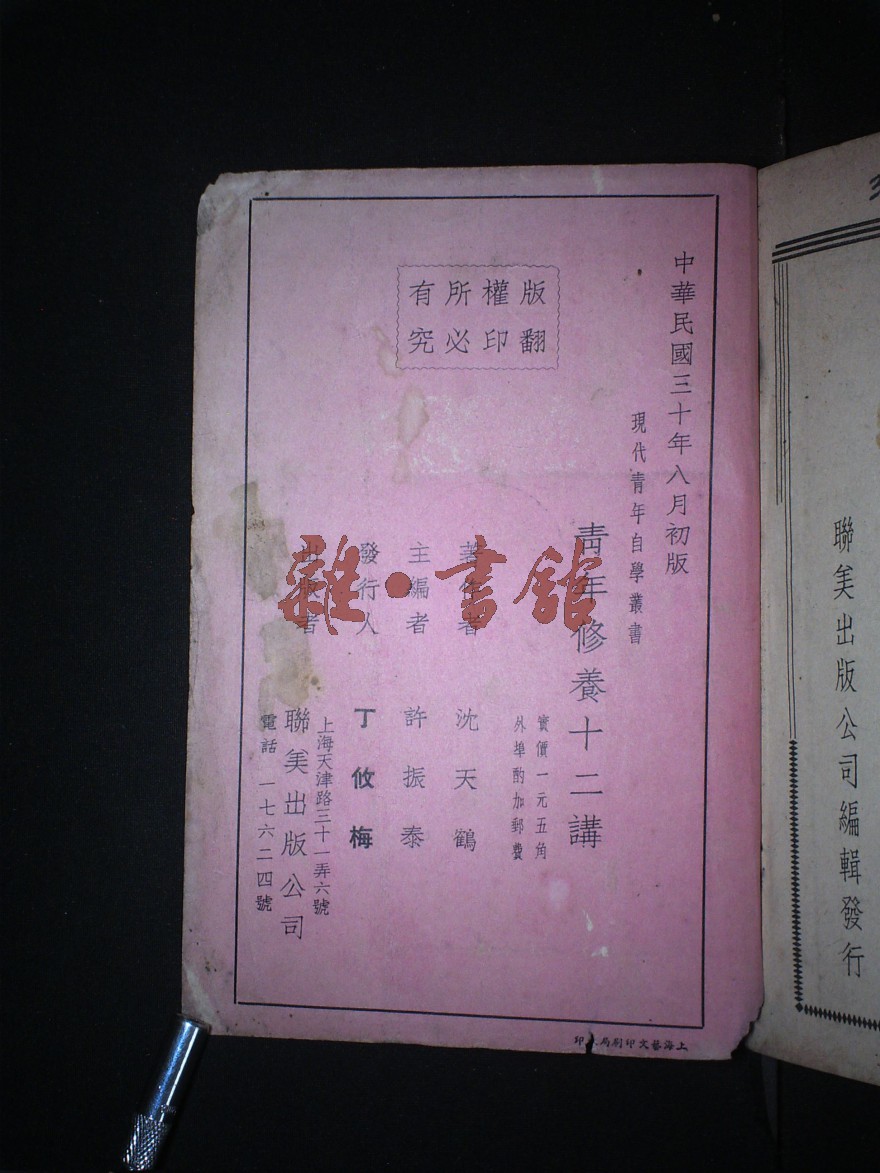 中華民國三十年八月初版
現代青年自學叢書
青年修養十二講
實價一元五角
外埠酌加郵費
版權所有
翻印必究
著作者 沈天鶴
主編者 許振泰
發行人 丁攸梅
出版者 聯美出版公司
上海天津路三十一弄六號
電話 一七六二四號
上海藝文印刷局印
聯美出版公司編輯發行
雜·書館